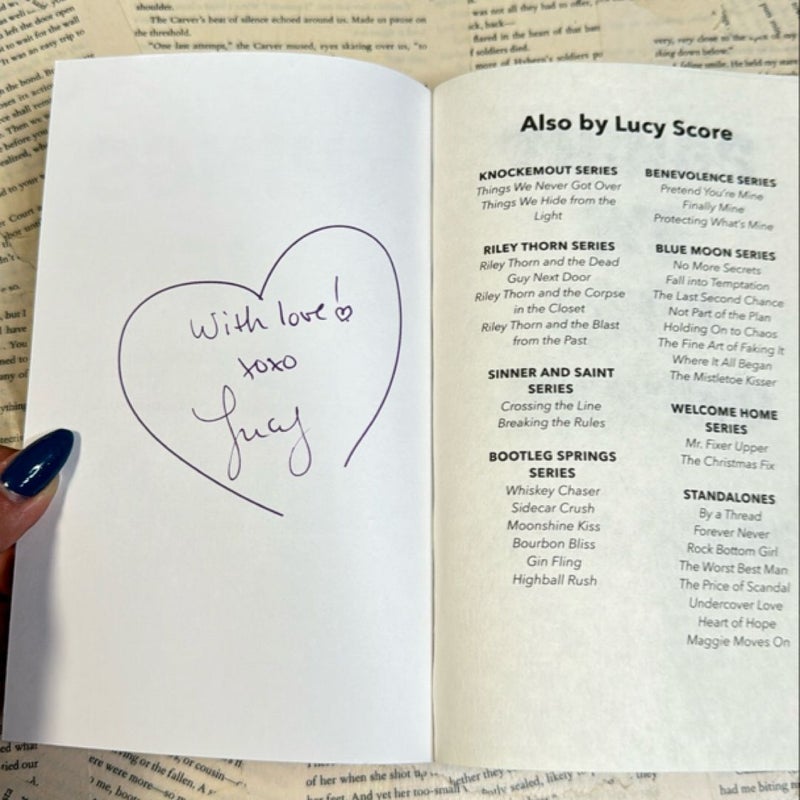 shoulder.
The Carver's beat of silence echoed around us. Made us pause on
the threshold.
"One last attempt," the Carver mused, eyes skating over us, "to
was not all they had to offer,
back—
flared in the heart of that
soldiers died.
more of Hybern's soldiers
very, very close to the
thing down below."
With love!
xoxo
Lucy
Also by Lucy Score
KNOCKEMOUT SERIES
Things We Never Got Over
Things We Hide from the
Light
RILEY THORN SERIES
Riley Thorn and the Dead
Guy Next Door
Riley Thorn and the Corpse
in the Closet
Riley Thorn and the Blast
from the Past
SINNER AND SAINT
SERIES
Crossing the Line
Breaking the Rules
BOOTLEG SPRINGS
SERIES
Whiskey Chaser
Sidecar Crush
Moonshine Kiss
Bourbon Bliss
Gin Fling
Highball Rush
BENEVOLENCE SERIES
Pretend You're Mine
Finally Mine
Protecting What's Mine
BLUE MOON SERIES
No More Secrets
Fall into Temptation
The Last Second Chance
Not Part of the Plan
Holding On to Chaos
The Fine Art of Faking It
Where It All Began
The Mistletoe Kisser
WELCOME HOME
SERIES
Mr. Fixer Upper
The Christmas Fix
STANDALONES
By a Thread
Forever Never
Rock Bottom Girl
The Worst Best Man
The Price of Scandal
Undercover Love
Heart of Hope
Maggie Moves On
or the fallen. A
were more—so
of her when she shot
her feet. And yet her too-small
sealed, likely
had me biting